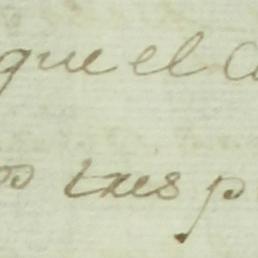 que el
tres p